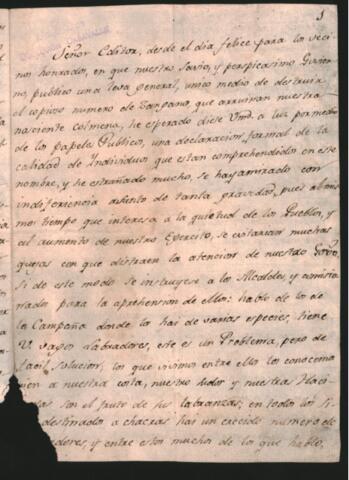 1
Señor Editor, desde el dia felice para los veci-
nos honrados, en que nuestro savio, y perspicasimo Govier-
no, publicó una leva general, unico medio de destruir
el copioso numero de Zanganos, que arruinan nuestra
nasciente Colmena, he esperado diese Vmd. a luz por medio
de los papeles Publicos, una declaracion formal de la
calidad de Individuos que estan comprehendidos en este
nombre, y he estrañado mucho, se haya mirado con
indiferencia asunto de tanta gravedad, pues al mis-
mo tiempo que interesa a la quietud de los Pueblos, y
al aumento de nuestro Exercito, se evitarian muchas
quejas con que distraen la atencion de nuestro Govno.
si de este modo se instuyese a los Alcaldes y comisio-
nados para la aprehension de ellos: hablo de los de
la Campaña donde los hai de varias especies, tiene
V. vagos labradores, este es un Problema, pero de
facil solucion; los que vivimos entre ellos los conocemos
nen a nuestra costa, nuestro sudor y nuestras Haci-
das son el fruto de sus labranzas; en todos los
destinados a chacras hai un crecido numero de
dores, y entre estos muchos de los que hablo,